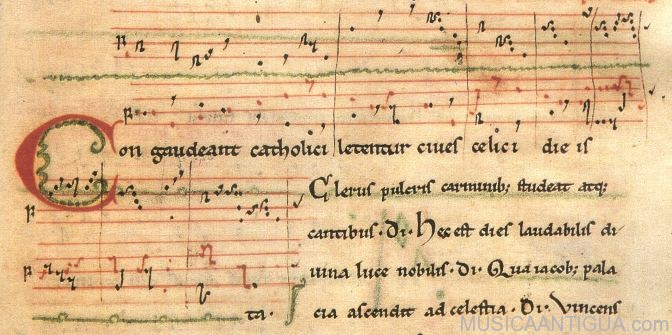 Congaudeant catholici letentur ciues celici die is
Clerus pulcris carminib; studeat atq;
cantibus · Di · Hec est dies laudabilis di
uina luce nobilis · Di · Qua iacob; pala
ta · cia ascendit ad celestia · Di · Vincens
MUSICAANTIGUA.com